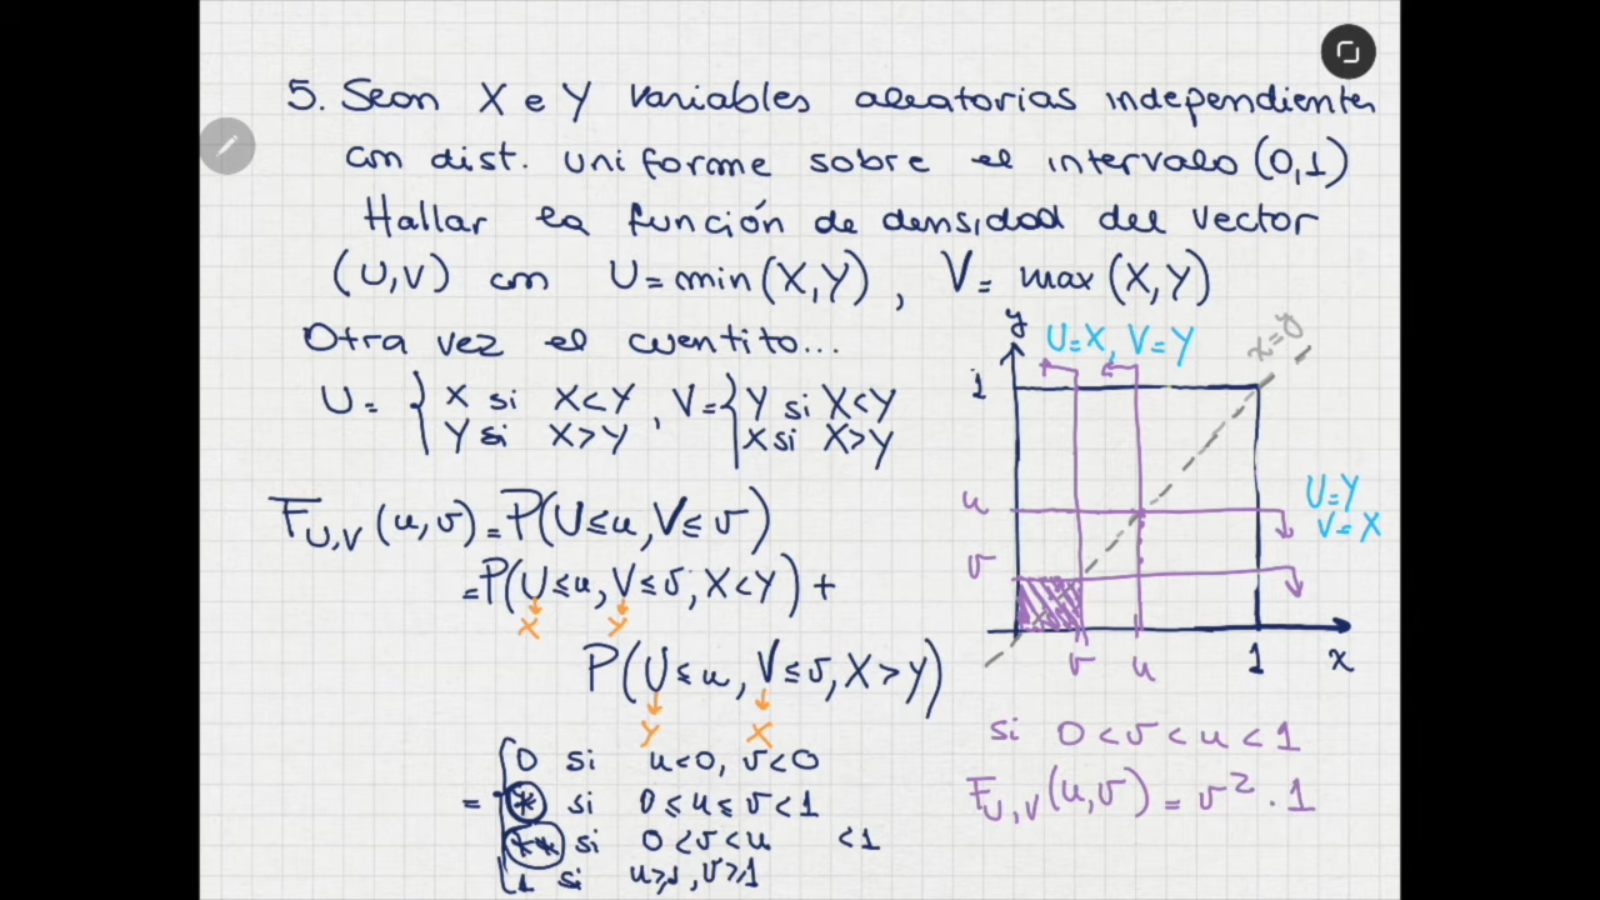 5. Sean X e Y variables aleatorias independientes
con dist. uniforme sobre el intervalo (0,1)
Hallar la función de densidad del vector
(U,V) con U = min(X,Y), V = max(X,Y)
Otra vez el cuentito...
U = { X si X<Y , V = { Y si X<Y
Y si X>Y X si X>Y
F_{U,V}(u,v) = P(U≤u, V≤v)
= P(U≤u, V≤v, X<Y) +
X Y
P(U≤u, V≤v, X>Y)
Y X
= { 0 si u<0, v<0
* si 0≤u≤v<1
** si 0<v<u <1
1 si u≥1, v≥1
y
U=X, V=Y
x=y
1
u
v
U=Y
V=X
v u 1 x
si 0<v<u<1
F_{U,V}(u,v) = v² . 1